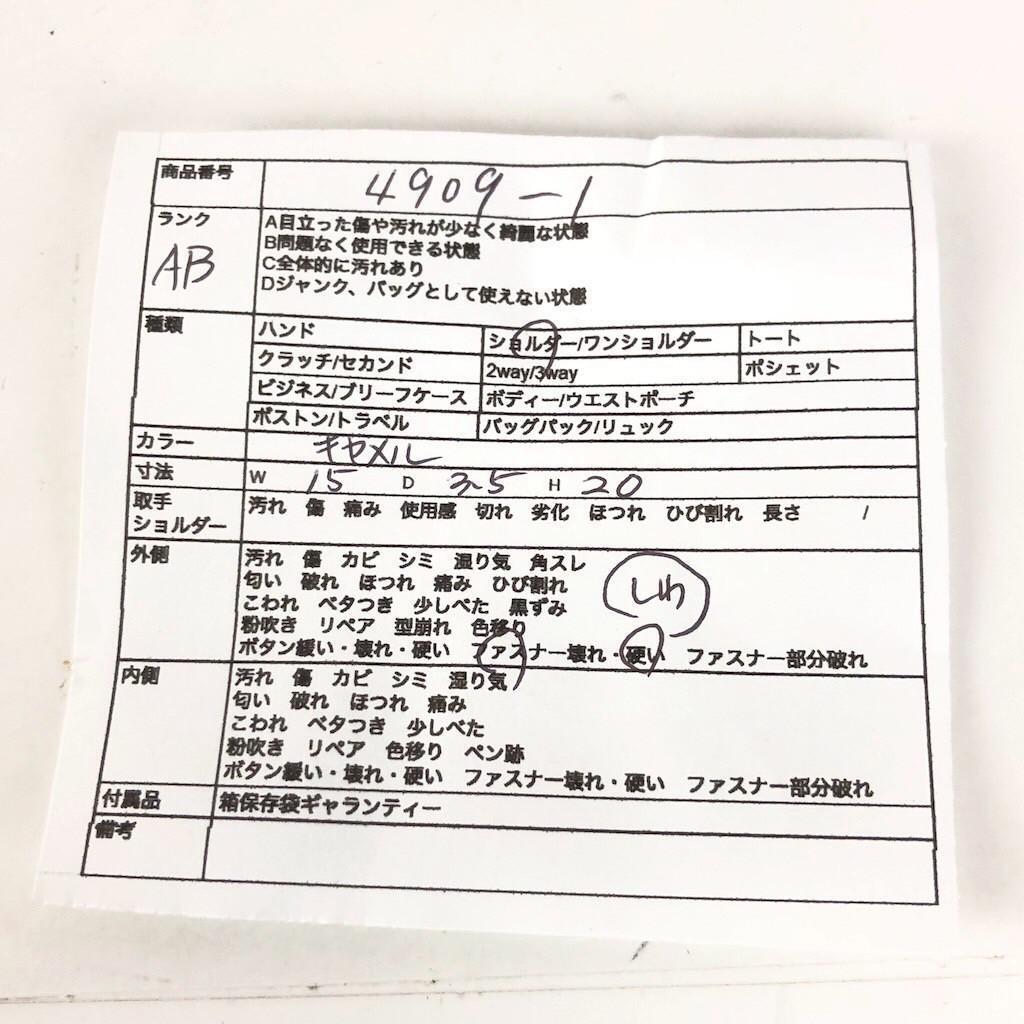 商品番号 4909-1
ランク AB
A目立った傷や汚れが少なく綺麗な状態
B問題なく使用できる状態
C全体的に汚れあり
Dジャンク、バッグとして使えない状態
種類 ハンド ショルダー/ワンショルダー トート
クラッチ/セカンド 2way/3way ポシェット
ビジネス/ブリーフケース ボディー/ウエストポーチ
ボストン/トラベル バッグパック/リュック
カラー キャメル
寸法 W 15 D 3.5 H 20
取手 汚れ 傷 痛み 使用感 切れ 劣化 ほつれ ひび割れ 長さ /
ショルダー
外側 汚れ 傷 カビ シミ 湿り気 角スレ
匂い 破れ ほつれ 痛み ひび割れ しわ
こわれ ベタつき 少しべた 黒ずみ
粉吹き リペア 型崩れ 色移り
ボタン緩い・壊れ・硬い ファスナー壊れ・硬い ファスナー部分破れ
内側 汚れ 傷 カビ シミ 湿り気
匂い 破れ ほつれ 痛み
こわれ ベタつき 少しべた
粉吹き リペア 色移り ペン跡
ボタン緩い・壊れ・硬い ファスナー壊れ・硬い ファスナー部分破れ
付属品 箱保存袋ギャランティー
備考